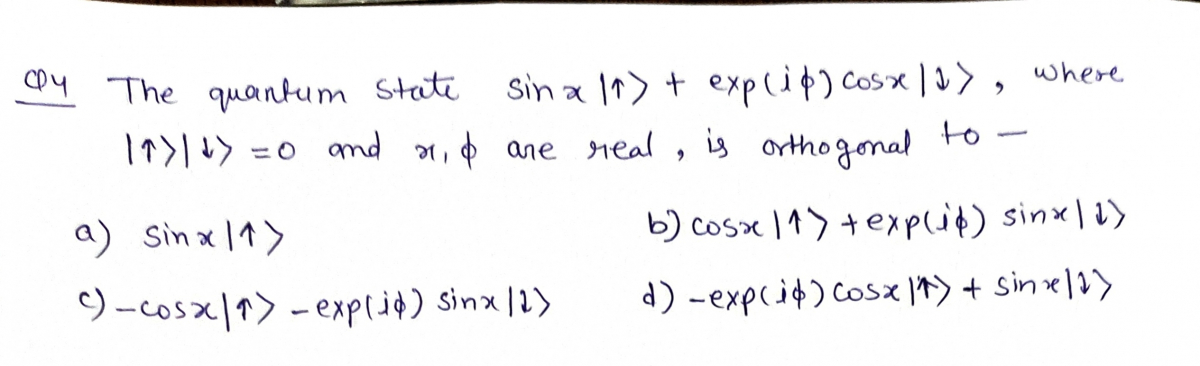 Q4 The quantum state sinx |↑> + exp(iϕ) cosx |↓> , where
|↑>|↓> = 0 and x, ϕ are real , is orthogonal to —
a) sinx |↑>
b) cosx |↑> + exp(iϕ) sinx |↓>
c) -cosx |↑> - exp(iϕ) sinx |↓>
d) -exp(iϕ) cosx |↑> + sinx |↓>